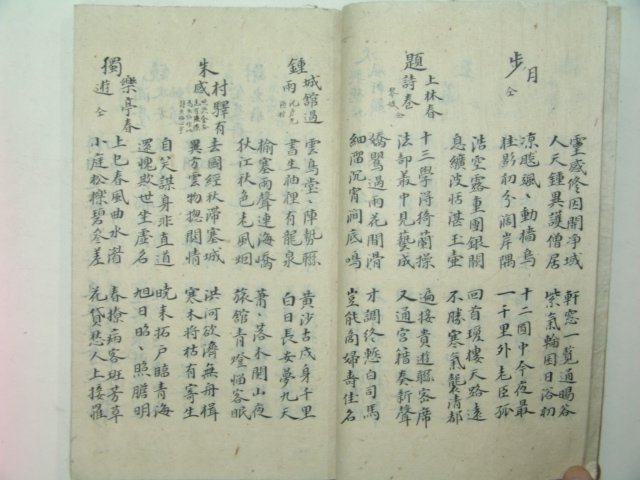 靈感修因閘凈域 軒窓一覧通暘谷
人天鍾異護僧居 紫氣輪囷日浴初
步月 仝
凉飈颯〻動檣烏 十二園中今夜最
桂影初分闊岸隅 一千里外老臣孤
浩空露重團銀闕 回首瓊樓天路遠
息纊波恬湛玉壷 不勝寒氣襲清都
題上林春詩卷 琴妓 仝
十三學得猗蘭操 遍接貴遊聯客席
法部叢中見藝成 又通宮 奏新聲
嬌鸎過雨花間滑 才調終慙白司馬
細溜沉宵澗底鳴 豈能商婦壽佳名
鍾城館遇雨
雲鳥堂〻陣勢聯 黃沙古戍身千里
書生袖裡有龍泉 白日長安夢九天
榆塞雨聲連海嶠 蕭〻落木関山夜
秋江秋色老風烟 旅館青燈惱客眠
朱村驛有感
去國經秋滯塞城 洪河欲濟無舟楫
異方雲物揔関情 寒木將枯有寄生
自笑謀身非直道 曉來拓戶臨青海
還愧欺世坐虛名 旭日昭〻照膽明
樂亭春獨遊 仝
上巳春風曲水濱 春撩病客斑芳草
小庭松櫟碧參差 花貸愁人上接䍦